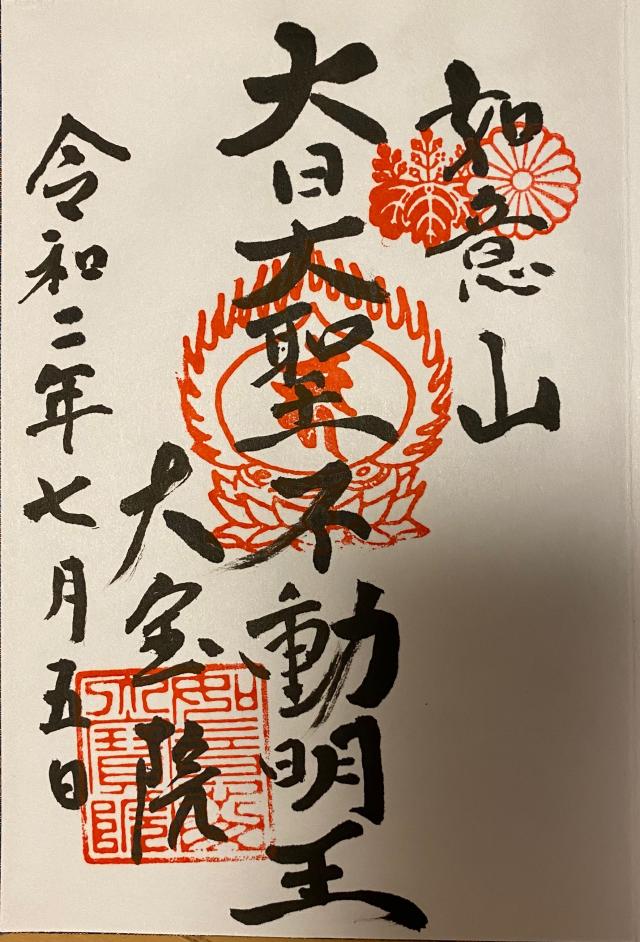 如意山
大日大聖不動明王
大宝院
令和二年七月五日